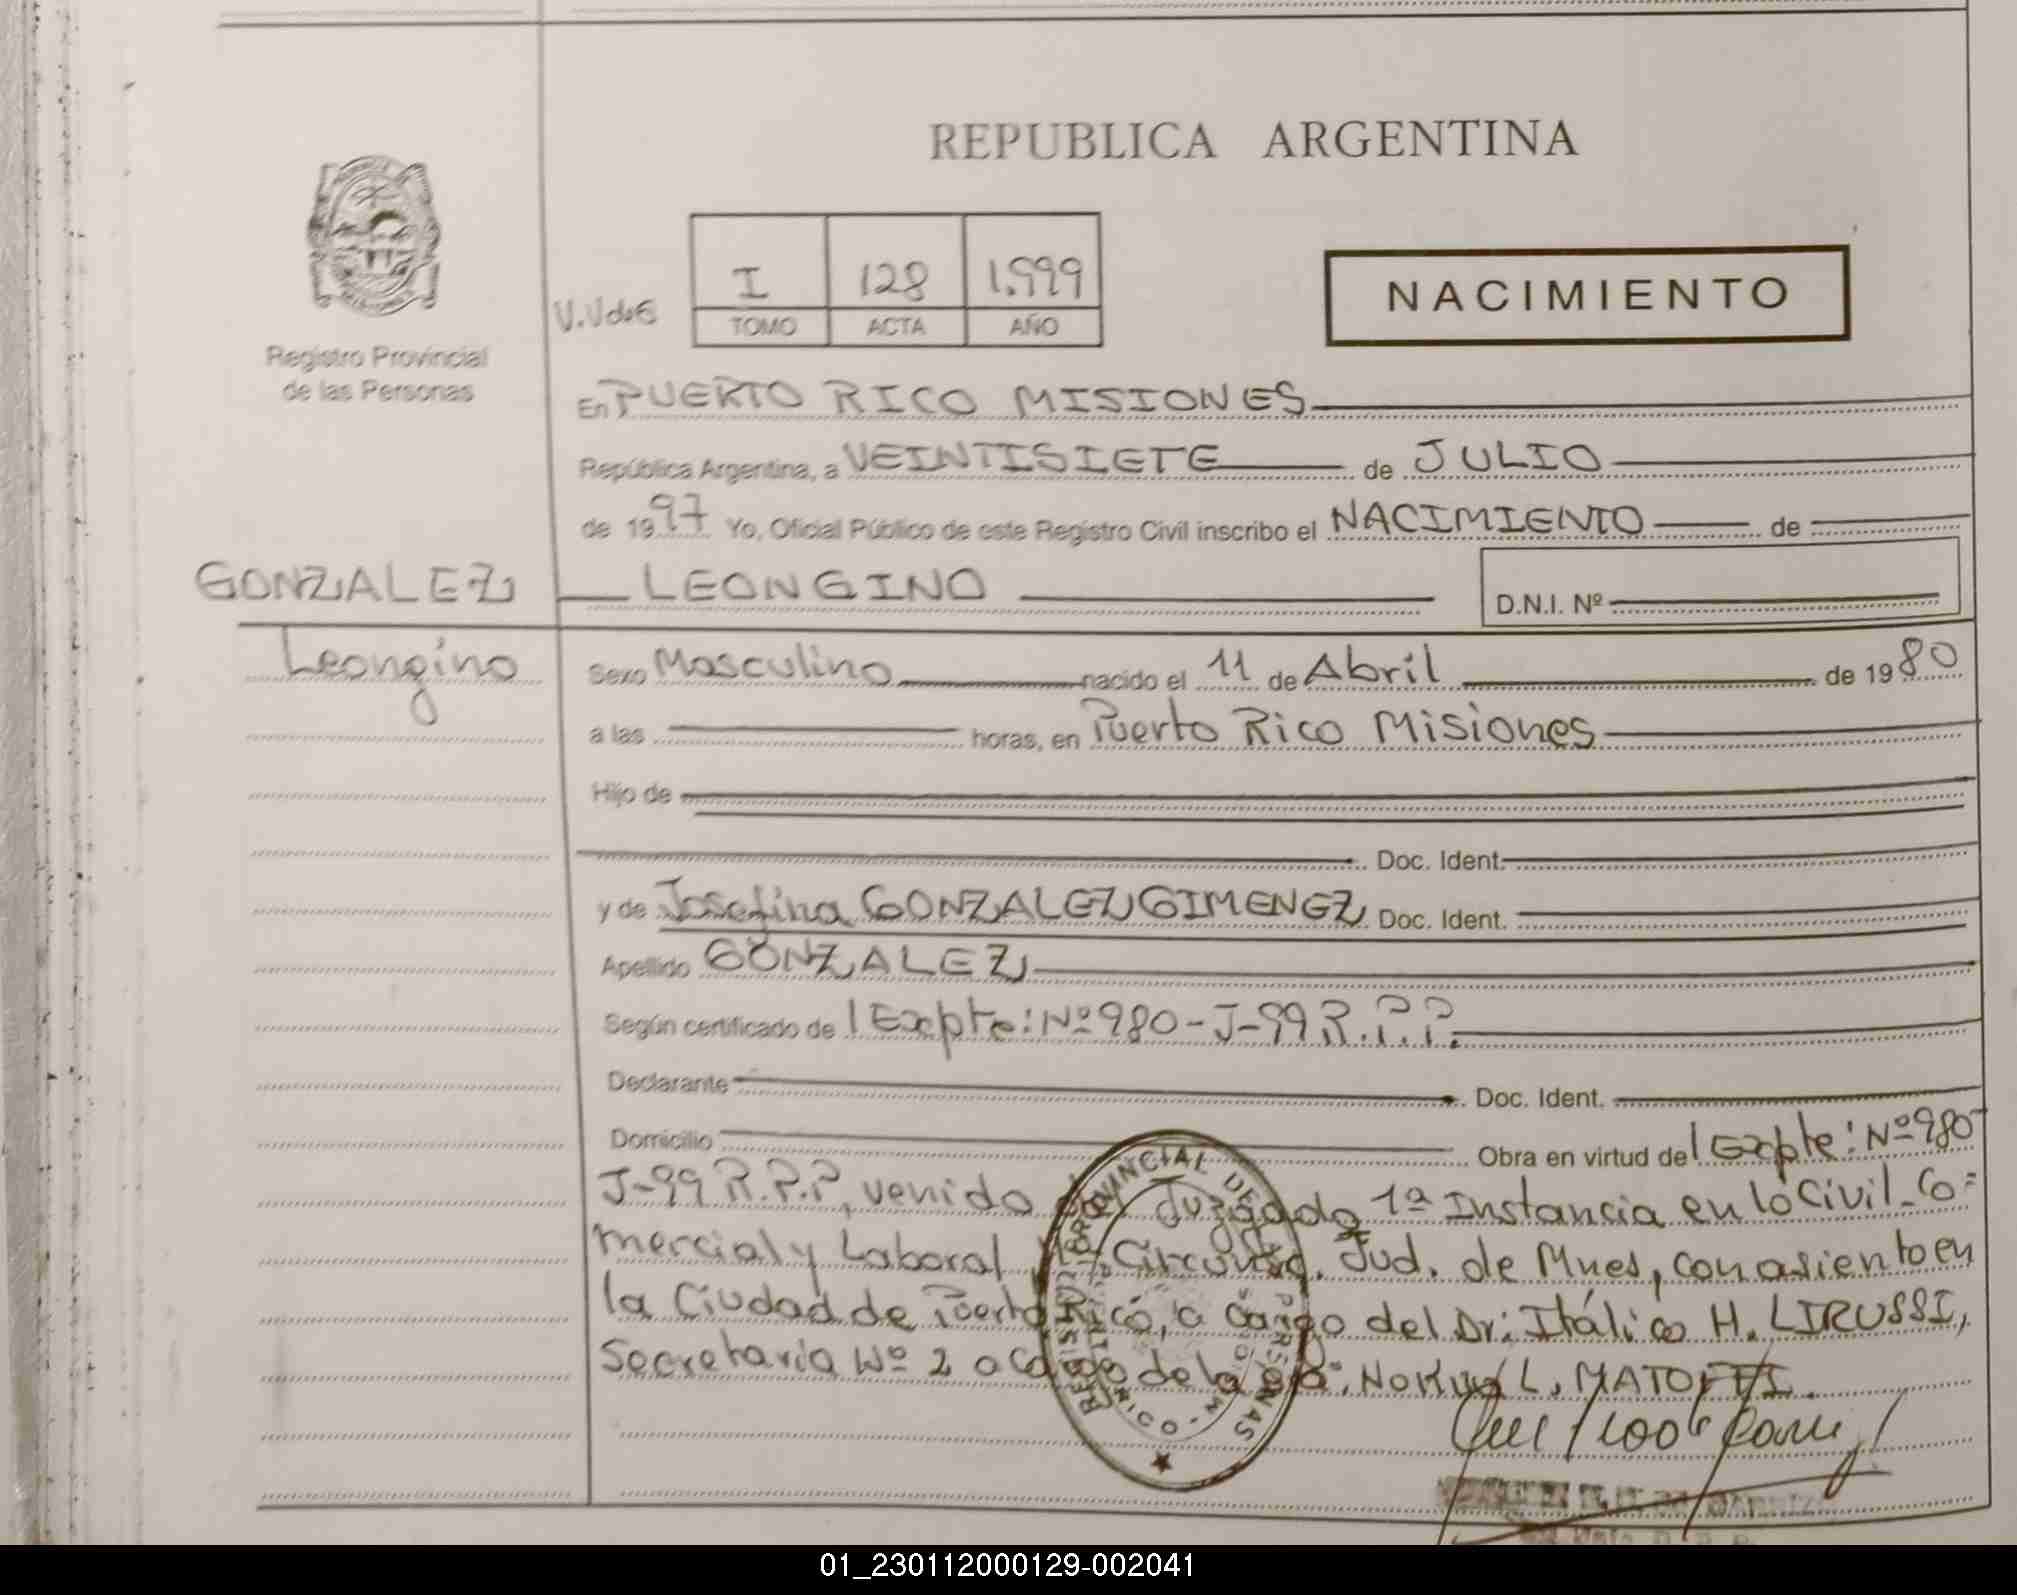 REPUBLICA ARGENTINA
I 128 1.999
TOMO ACTA AÑO
NACIMIENTO
Registro Provincial
de las Personas
En PUERTO RICO MISIONES
República Argentina, a VEINTISIETE de JULIO
de 1997 Yo, Oficial Público de este Registro Civil inscribo el NACIMIENTO de
GONZALEZ LEONGINO D.N.I. Nº
Leongino Sexo Masculino nacido el 11 de Abril de 1980
a las horas, en Puerto Rico Misiones
Hijo de
Doc. Ident.
y de Josefina GONZALEZ GIMENEZ Doc. Ident.
Apellido GONZALEZ
Según certificado de l Expte: Nº 980-J-99 R.P.P.
Declarante Doc. Ident.
Domicilio Obra en virtud del Expte: Nº 980
J-99 R.P.P, venido del Juzgado 1ª Instancia en lo Civil-Co=
mercial y Laboral Circunsc. Jud. de Mnes, con asiento en
la Ciudad de Puerto Rico, a cargo del Dr. Itálico H. LIRUSSI,
Secretaría Nº 2 a cargo de la L. MATOFFI.
REGISTRO PROVINCIAL DE LAS PERSONAS
01_230112000129-002041